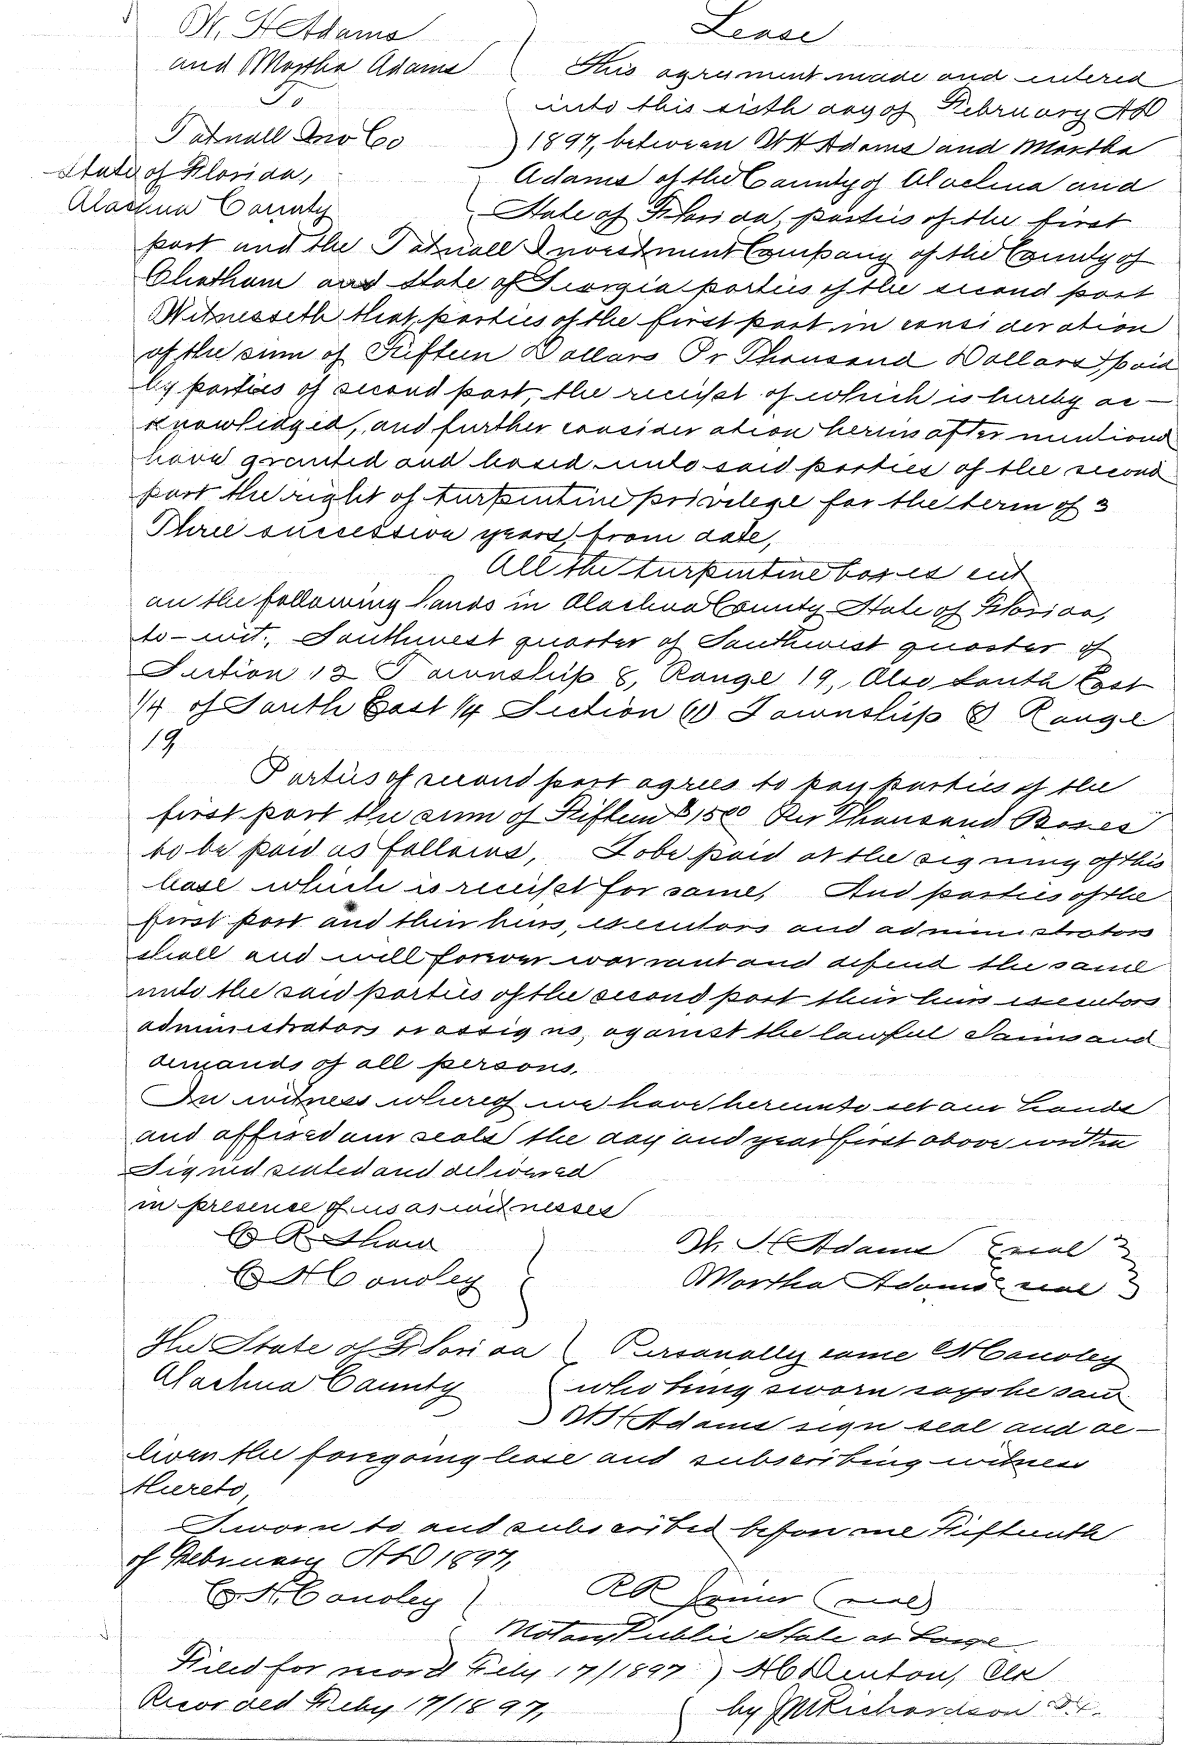 W. H Adams
and Martha Adams
To
Tatnall Inv Co
State of Florida,
Alachua County
Lease
This agreement made and entered
into this sixth day of February AD
1897, between W H Adams and Martha
Adams of the County of Alachua and
State of Florida, parties of the first
part and the Tatnall Investment Company of the County of
Chatham and State of Georgia parties of the second part
Witnesseth that, parties of the first part in consideration
of the sum of Fifteen Dollars Pr Thousand Dollars paid
by parties of second part, the receipt of which is hereby ac-
knowledged, and further consideration herein after mentioned
have granted and leased unto said parties of the second
part the right of turpentine privilege for the term of 3
Three succession years, from date,
All the turpentine boxes cut
on the following lands in Alachua County State of Florida,
to-wit. Southwest quarter of Southwest quarter of
Section 12 Township 8, Range 19, Also South East
1/4 of South East 1/4 Section 11 Township 8 Range
19
Parties of second part agrees to pay parties of the
first part the sum of Fifteen $15 00 Per Thousand Boxes
to be paid as follows, To be paid at the signing of this
lease which is receipt for same, And parties of the
first part and their heirs, executors and administrators
shall and will forever warrant and defend the same
unto the said parties of the second part their heirs executors
administrators or assigns, against the lawful claims and
demands of all persons.
In witness whereof we have hereunto set our hands
and affixed our seals the day and year first above written
Signed sealed and delivered
in presence of us as witnesses
C R. Shaw
C H Candley
W. H Adams {seal}
Martha Adams {seal}
The State of Florida
Alachua County
Personally came C H Candley
who being sworn says he saw
W H Adams sign seal and de-
liver the foregoing lease and subscribing witness
thereto,
Sworn to and subscribed before me Fifteenth
of February AD 1897,
C. H. Candley
R R Joiner (seal)
Notary Public State at Large
Filed for record Feby 17/1897
Recorded Feby 17/1897,
H C Denton, Clk
by J M Richardson D.C.